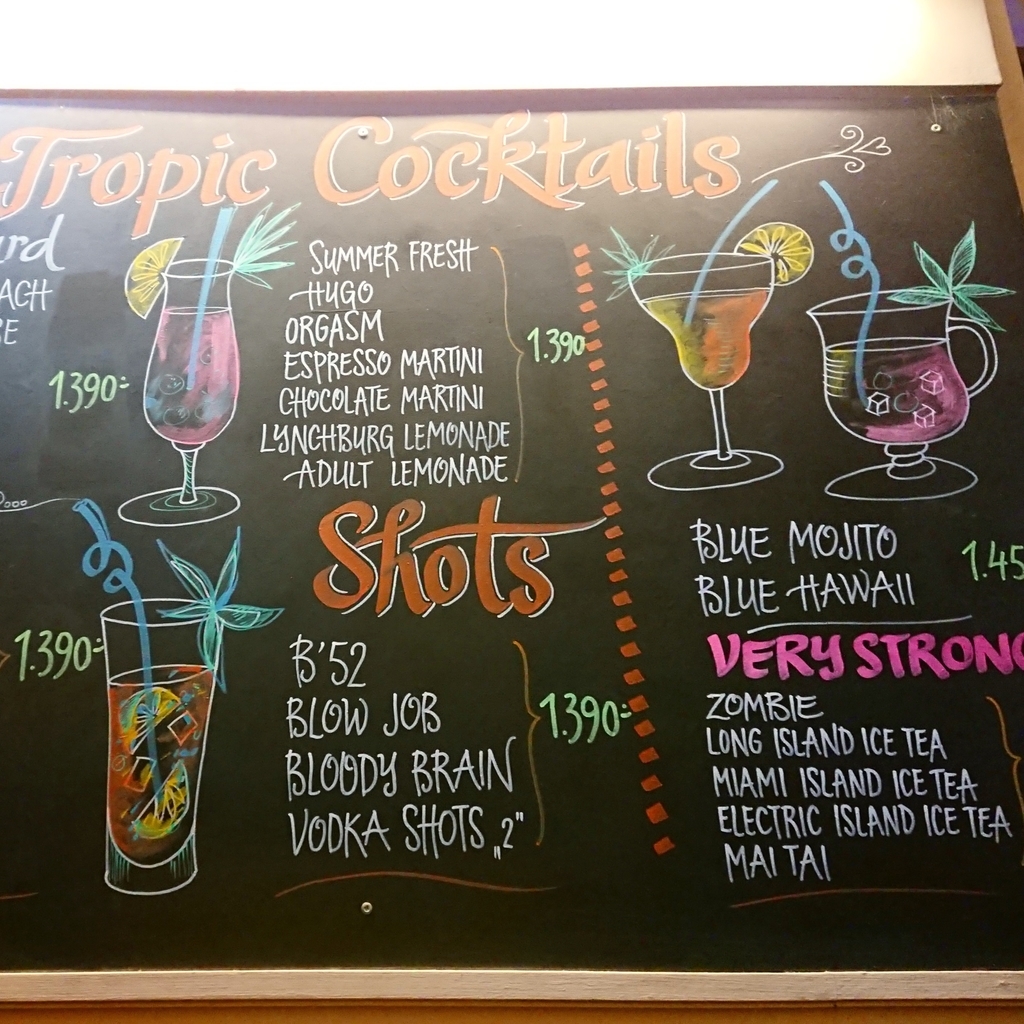 Tropic Cocktails
1.390.-
SUMMER FRESH
HUGO
ORGASM
ESPRESSO MARTINI
CHOCOLATE MARTINI
LYNCHBURG LEMONADE
ADULT LEMONADE
1.390
Shots
1.390.-
B'52
BLOW JOB
BLOODY BRAIN
VODKA SHOTS „2"
1.390.-
BLUE MOJITO
BLUE HAWAII
1.45
VERY STRONG
ZOMBIE
LONG ISLAND ICE TEA
MIAMI ISLAND ICE TEA
ELECTRIC ISLAND ICE TEA
MAI TAI